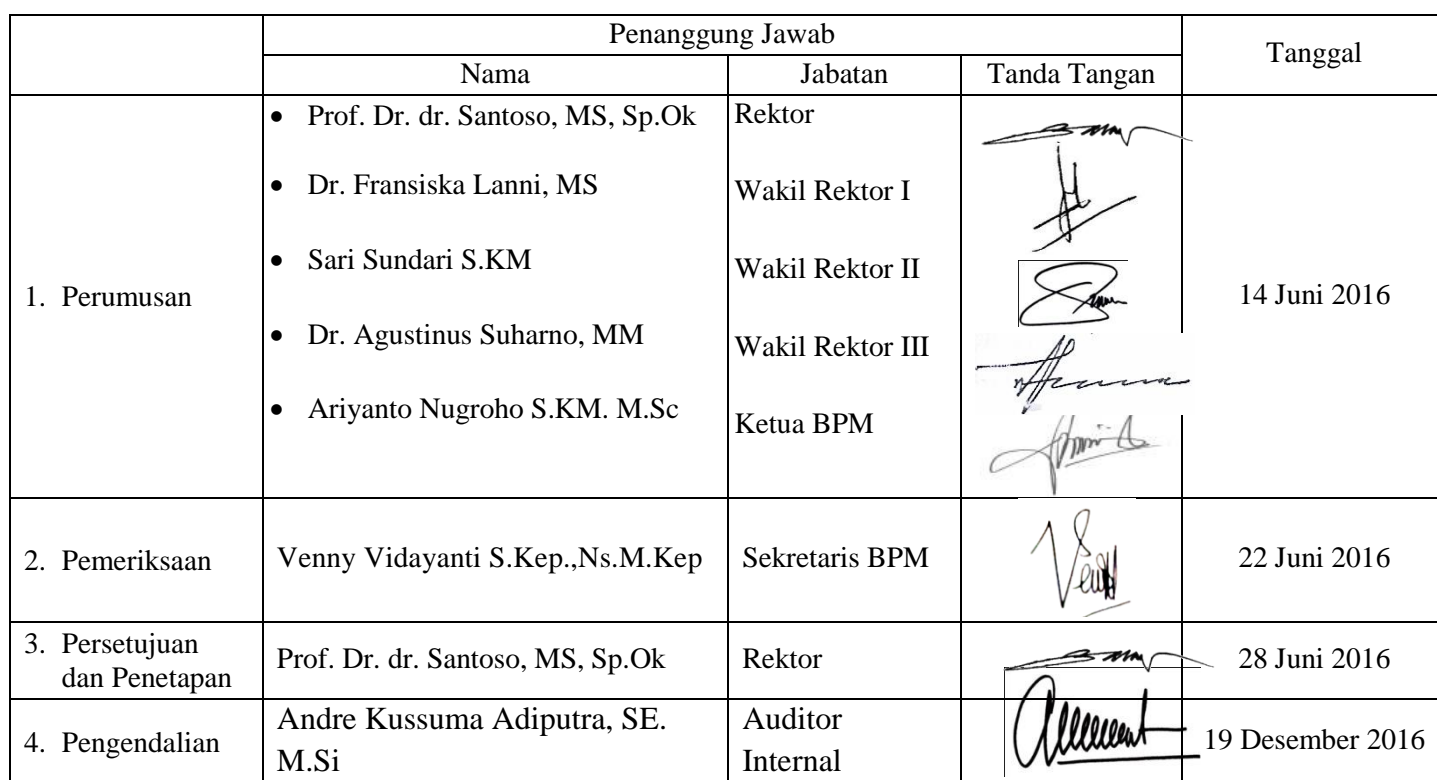 Penanggung Jawab
Tanggal
Nama Jabatan Tanda Tangan
1. Perumusan
• Prof. Dr. dr. Santoso, MS, Sp.Ok Rektor
• Dr. Fransiska Lanni, MS Wakil Rektor I
• Sari Sundari S.KM Wakil Rektor II
• Dr. Agustinus Suharno, MM Wakil Rektor III
• Ariyanto Nugroho S.KM. M.Sc Ketua BPM
14 Juni 2016
2. Pemeriksaan Venny Vidayanti S.Kep.,Ns.M.Kep Sekretaris BPM 22 Juni 2016
3. Persetujuan
dan Penetapan
Prof. Dr. dr. Santoso, MS, Sp.Ok Rektor 28 Juni 2016
4. Pengendalian
Andre Kussuma Adiputra, SE.
M.Si
Auditor
Internal
19 Desember 2016